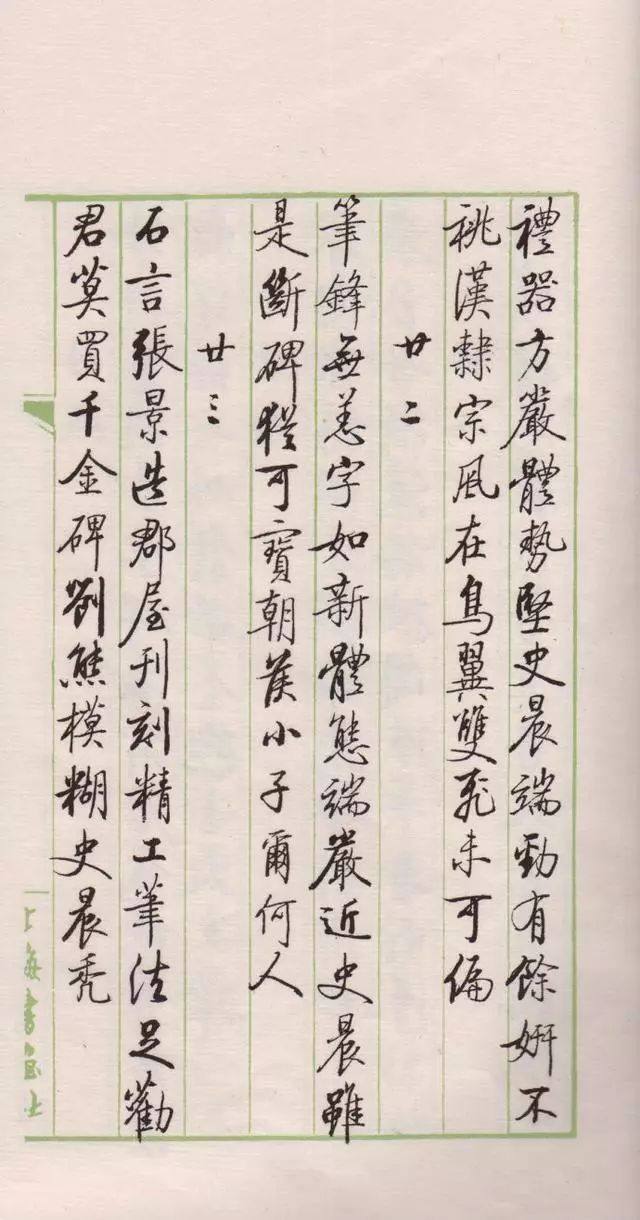 禮器方嚴體勢堅史晨端勁有餘妍不
祧漢隸宗風在鳥翼雙飛未可偏
廿二
筆鋒無恙字如新體態端嚴近史晨雖
是斷碑猶可寶朝侯小子爾何人
廿三
石言張景造郡屋刊刻精工筆法足勸
君莫買千金碑劉熊模糊史晨秃
上海書畫社